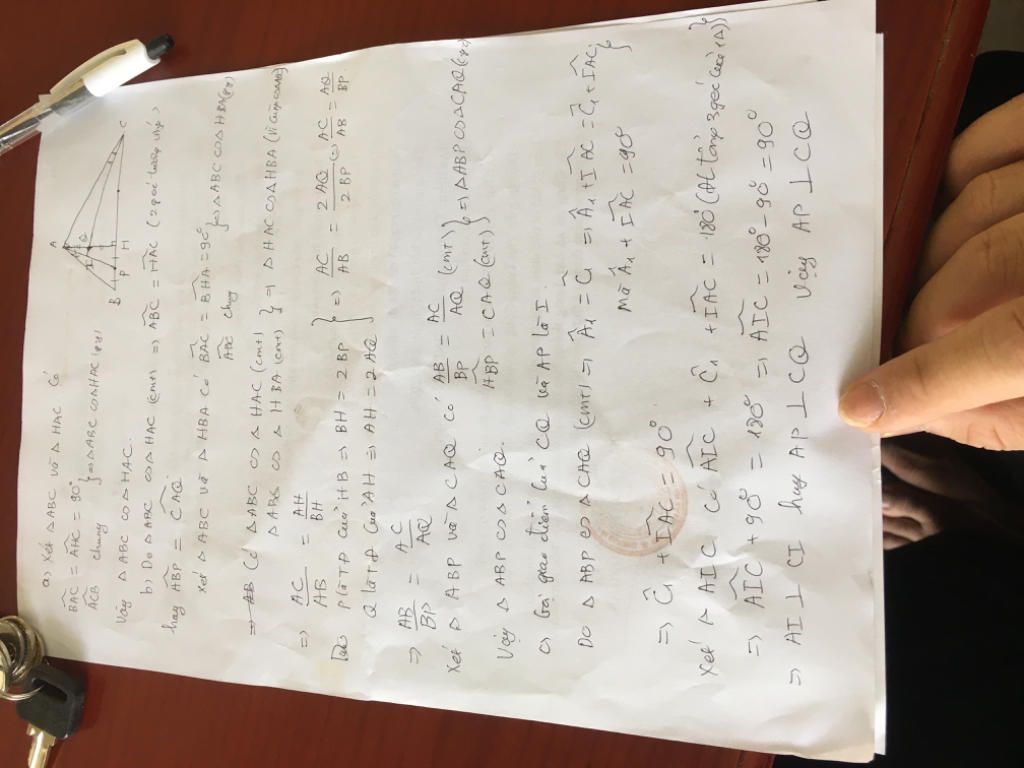 a, Xét Δ ABC và Δ HAC có
BAC = AHC = 90°
ACB chung } => ΔABC ∽ ΔHAC (g.g)
Vậy Δ ABC ∽ Δ HAC.
b) Do Δ ABC ∽ Δ HAC (cmt) => ABC = HAC (2 góc tương ứng)
hay ABP = CAQ.
Xét Δ ABC và Δ HBA có BAC = BHA = 90°
ABC chung } => ΔABC ∽ ΔHBA (g.g)
Có Δ ABC ∽ Δ HAC (cmt)
Δ ABC ∽ Δ HBA (cmt) } => Δ HAC ∽ Δ HBA
=> AC/AB = AH/BH
P là TĐ của HB => BH = 2BP
Q là TĐ của AH => AH = 2AQ } => AC/AB = 2AQ/2BP => AC/AB = AQ/BP
=> AB/BP = AC/AQ
Xét Δ ABP và Δ CAQ có AB/BP = AC/AQ (cmt)
HBP = CAQ (cmt) } => ΔABP ∽ ΔCAQ
Vậy Δ ABP ∽ Δ CAQ.
c) Gọi giao điểm của CQ và AP là I.
Do Δ ABP ∽ Δ CAQ (cmt) => Â₁ = Ĉ₁ => Â₁ + IAC = Ĉ₁ + IAC
Mà Â₁ + IAC = 90° }
=> Ĉ₁ + IAC = 90°
Xét Δ AIC có AIC + Ĉ₁ + IAC = 180° (ĐL tổng 3 góc của 1Δ)
=> AIC + 90° = 180° => AIC = 180° - 90° = 90°
=> AI ⊥ CI hay AP ⊥ CQ Vậy AP ⊥ CQ
A
B
P
H
C
Q